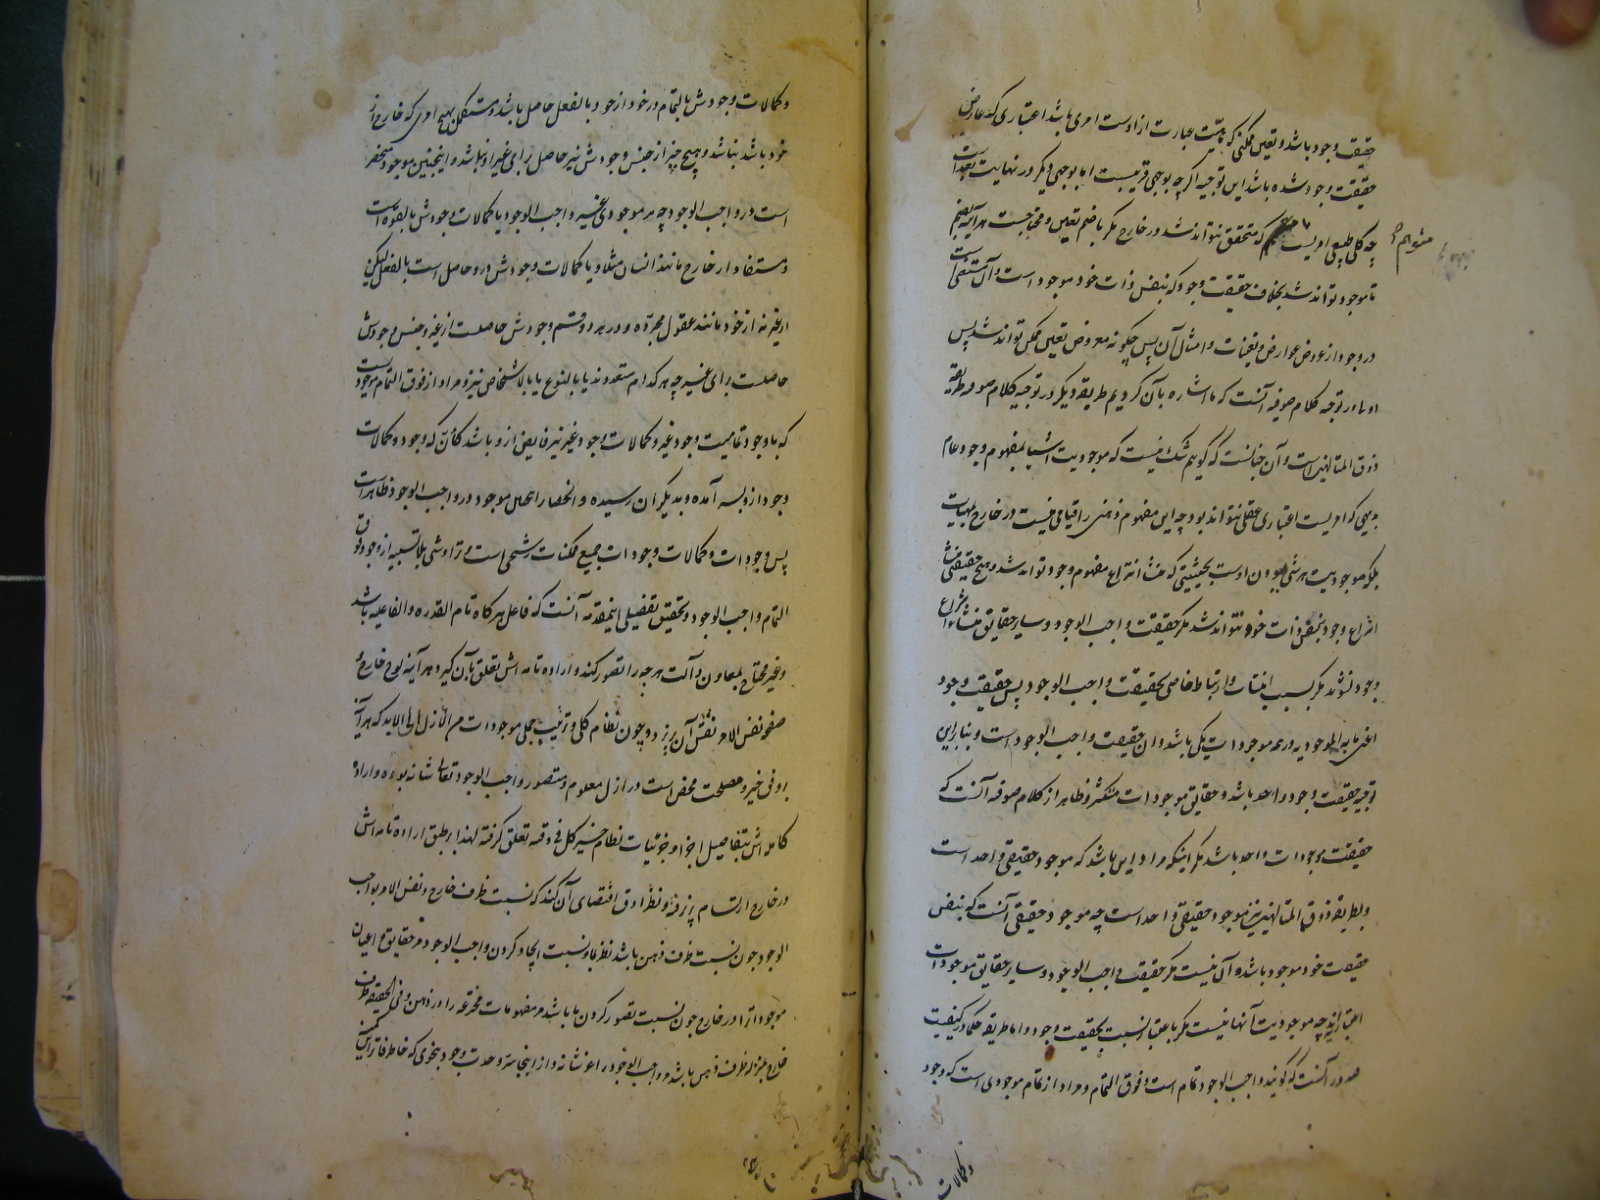 حقیقت وجود باشد و تعین ممکنی که ماهیت عبارت از اوست امری باشد اعتباری که عارض
حقیقت وجود شده باشد این توجیه اگرچه بوجهی قریبست اما بوجهی دیگر در نهایت بعد است
چه کلی طبیعی امریست که متحقق نتواند شد در خارج مگر بانضمام تعین و محتاجست هر آینه بضم
تا موجود تواند شد بخلاف حقیقت وجود که بنفس ذات خود موجود است و آن مستغنی است
در وجود از عروض عوارض و تعینات و امثال آن پس چگونه معروض تعین ممکن تواند شد پس
اولی در توجیه کلام صوفیه آنست که ما اشاره بآن کردیم طریقه دیگر در توجیه کلام صوفیه طریقه
ذوق المتالهین است و آن چنانست که گوییم شک نیست که موجودیت اشیا بمفهوم وجود عام
بدیهی که امریست اعتباری عقلی نتواند بود چه این مفهوم ذهنی را قیامی نیست در خارج بماهیات
بلکه موجودیت هر شی بودن اوست بحیثیتی که منشا انتزاع مفهوم وجود تواند شد و هیچ حقیقتی منشا
انتزاع وجود بنفس ذات خود نتواند شد مگر حقیقت واجب الوجود و سایر حقایق منشاء انتزاع
وجود نشوند مگر بسبب انتساب و ارتباط خاصی بحقیقت واجب الوجود پس حقیقت وجود
اعنی ما به الموجودیه در همه موجودات یکی باشد و آن حقیقت واجب الوجود است و بنابراین
توجیه حقیقت وجود واحد باشد و حقایق موجودات متکثر و ظاهر از کلام صوفیه آنست که
حقیقت موجودات واحد باشد مگر اینکه مراد این باشد که موجود حقیقی واحد است
و بطریقه ذوق المتالهین نیز موجود حقیقی واحد است چه موجود حقیقی آنست که بنفس
حقیقت خود موجود باشد و آن نیست مگر حقیقت واجب الوجود و سایر حقایق موجودات
اعتباراتند چه موجودیت آنها نیست مگر باعتبار نسبت بحقیقت وجود و اما طریقه حکما در کیفیت
صدور آنست که گویند واجب الوجود تمام است و فوق التمام و مراد از تمام موجودی است که وجود
و کمالات
و کمالات وجودش بالتمام در خود از خود بالفعل حاصل باشد و مستکمل بهیچ امری که خارج از
خود باشد نباشد و هیچ چیز از جنس وجودش نیز حاصل برای غیر او نباشد و اینچنین موجود منحصر
است در واجب الوجود چه هر موجودی غیر واجب الوجود یا کمالات وجودش بالقوه است
و مستفاد از خارج مانند انسان مثلا و یا کمالات وجودش در و حاصل است بالفعل لیکن
از غیر نه از خود مانند عقول مجرده و در هر دو قسم وجودش حاصلست از غیر و جنس وجودش
حاصلست برای غیر چه هر کدام متعددند یا بالنوع یا بالاشخاص نیز و مراد از فوق التمام موجودیست
که با وجود تمامیت وجود غیر و کمالات وجود غیر نیز فایض ازو باشد کانّ که وجود و کمالات
وجود ازو بسر آمده و بدیگران رسیده و انحصار اینچنین موجود در واجب الوجود ظاهر است
پس وجودات و کمالات وجودات جمیع ممکنات رشحی است و تراوشی بلا تشبیه از وجود فوق
التمام واجب الوجود و تحقیق تفصیلی اینمقدمه آنست که فاعل هرگاه تام القدره و الفاعلیه باشد
و غیر محتاج بمعاون و آلت هرچه را تصور کند و اراده تامه اش تعلق بآن گیرد هر آینه لوح خارج و
صفحه نفس الامر نقش آن پذیرد و چون نظام کلی و ترتیب جملی موجودات من الازل الی الابد که هر آینه
بر وفق خیر و مصلحت محض است در ازل معلوم و متصور واجب الوجود تعالی شانه بوده و اراده
کامله اش بتفاصیل اجزا و جزئیات نظام خیر کل فی وقته تعلق گرفته لهذا بر طبق اراده تامه اش
در خارج ارتسام پذیرفته و نظر دوق اقتضای آن کند که نسبت ظرف خارج و نفس الامر بواجب
الوجود چون نسبت ظرف ذهن باشد نظر بما و نسبت ایجاد کردن واجب الوجود مر حقایق و اعیان
موجودات را در خارج چون نسبت تصور کردن ما باشد مر مفهومات مخترعه را در ذهن و فی الحقیقه ظرف
خارج بمنزله ظرف ذهن باشد واجب الوجود را عز شانه و از اینجا سر وحدت وجود بنحوی که خاطر فاتر این کمین